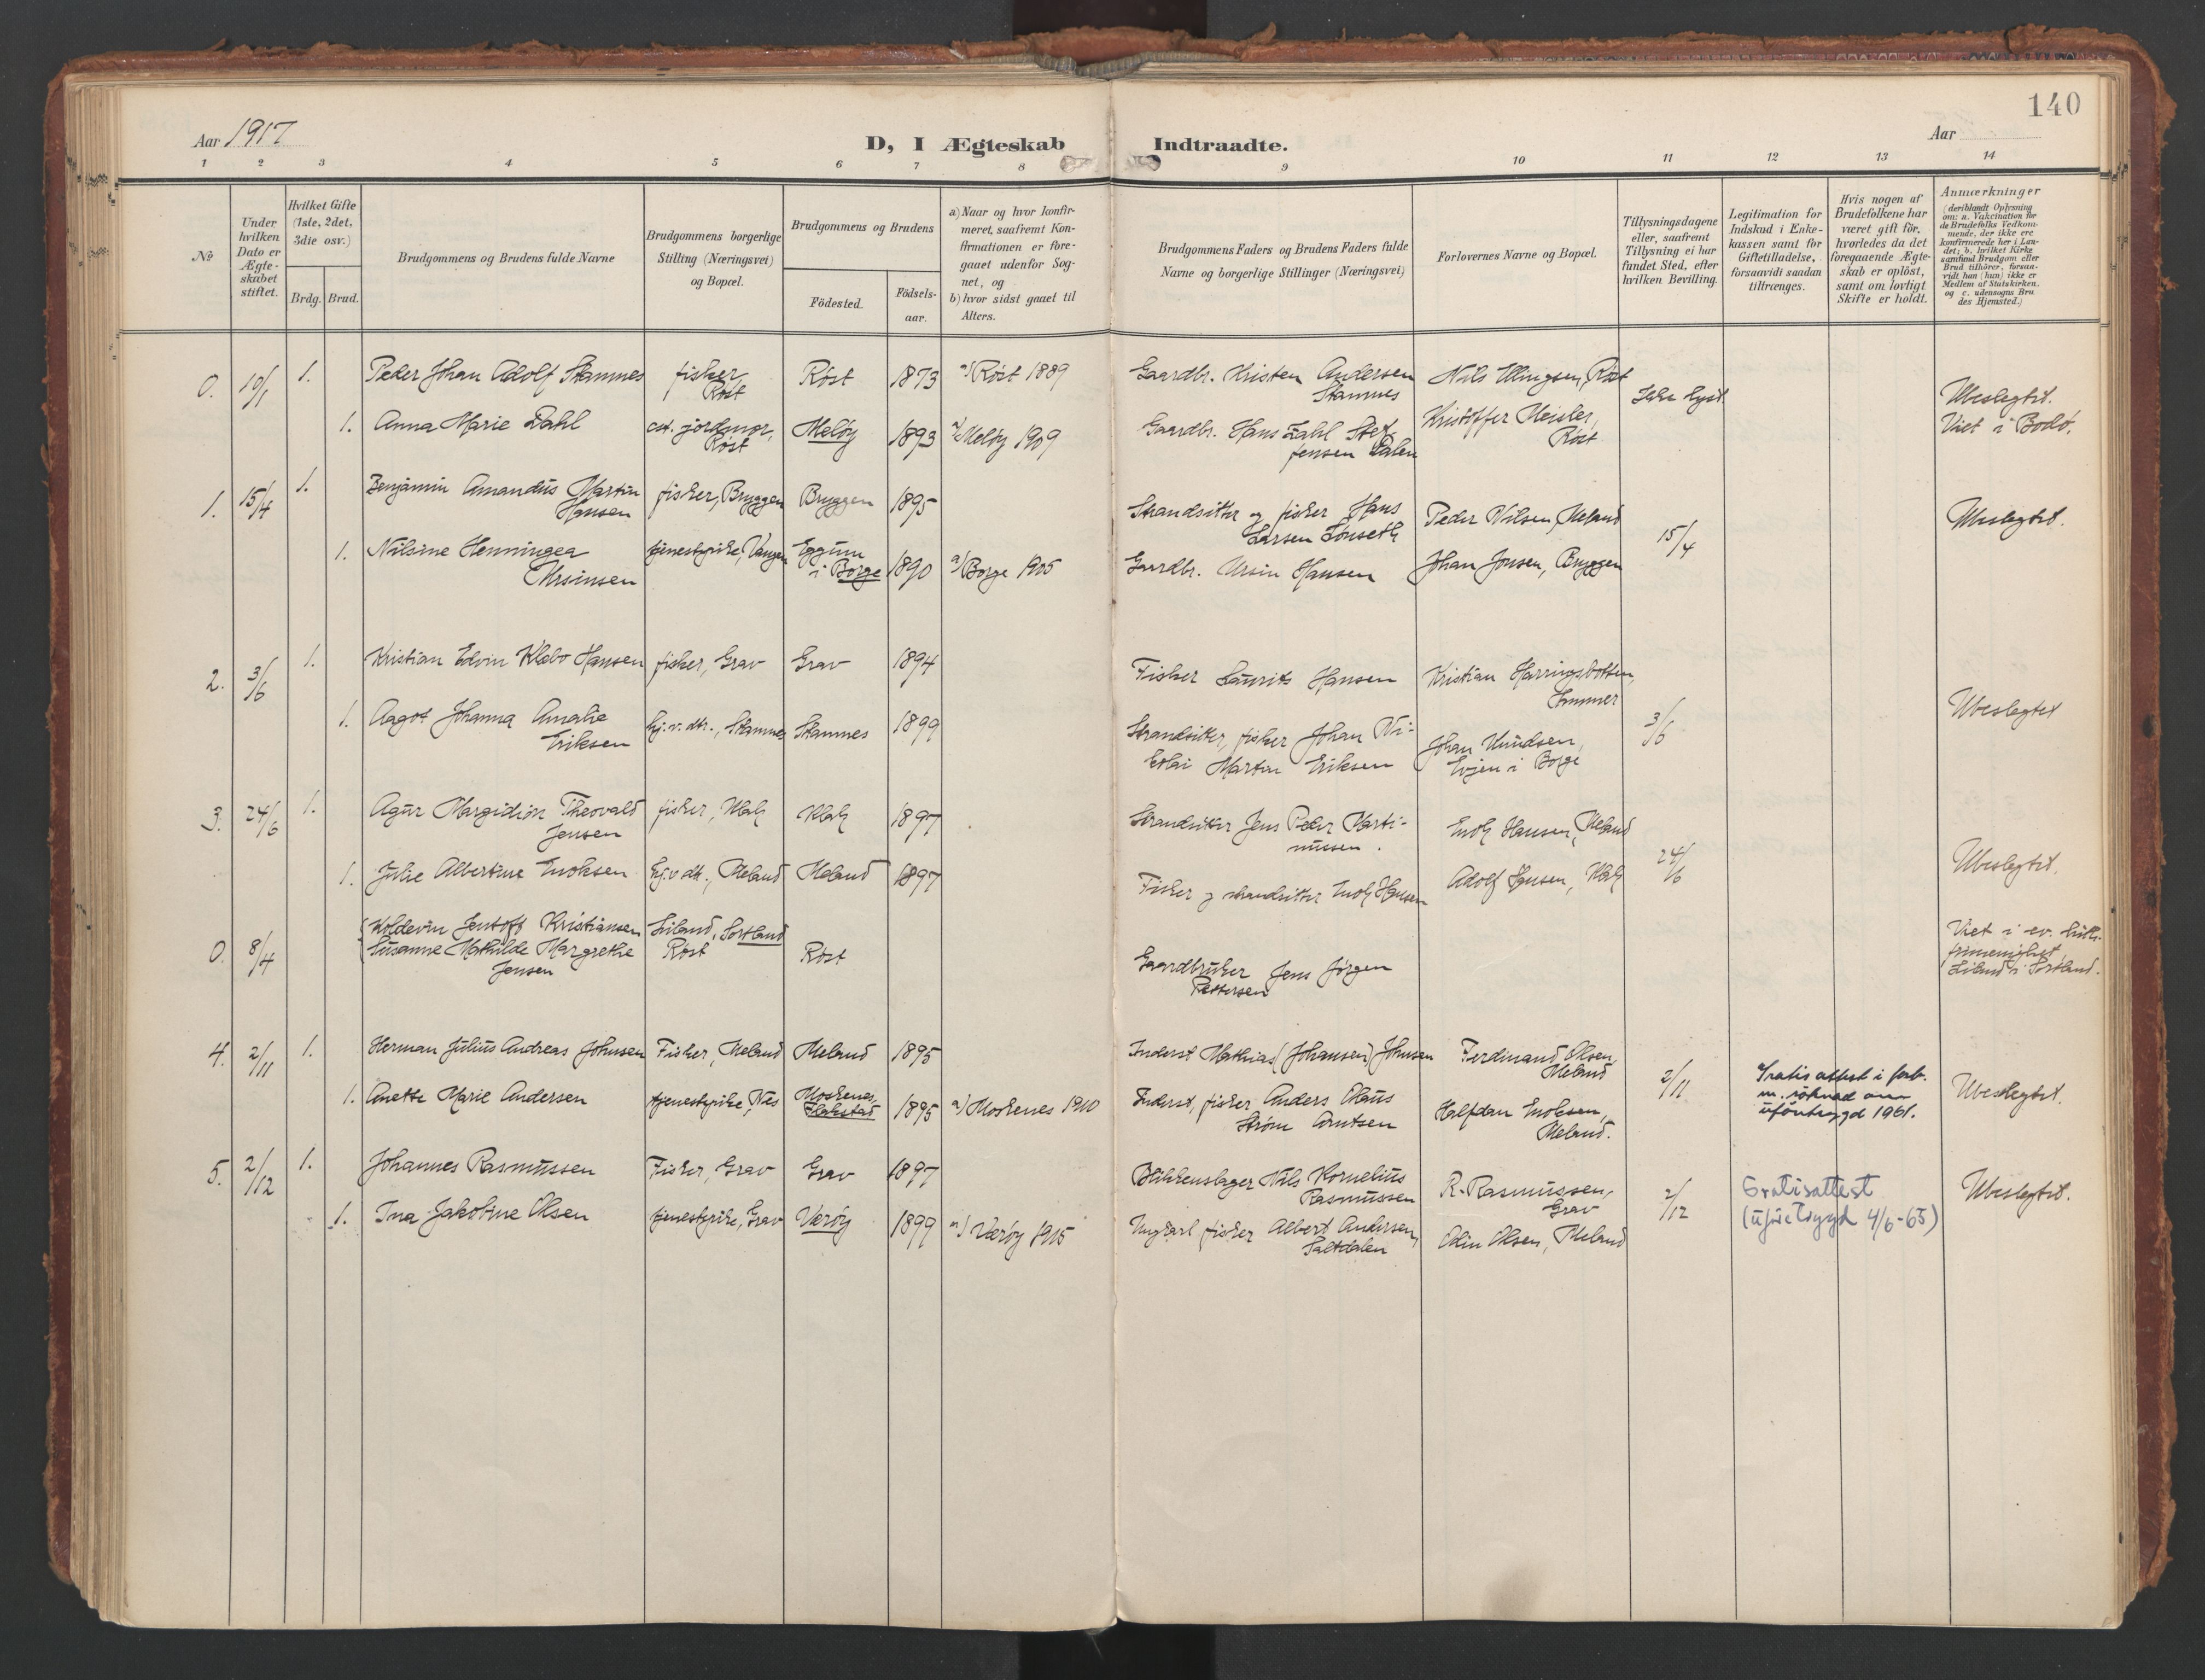 140
Aar 1917
D, I Ægteskab Indtraadte.
Aar
1 2 3 4 5 6 7 8 9 10 11 12 13 14
No
Under hvilken Dato er Ægteskabet stiftet.
Hvilket Gifte (1ste, 2det, 3die osv.)
Brdg. Brud.
Brudgommens og Brudens fulde Navne
Brudgommens borgerlige Stilling (Næringsvei) og Bopæl.
Brudgommens og Brudens
Födested.
Födsels-aar.
a) Naar og hvor konfir-
meret, saafremt Kon-
firmationen er fore-
gaaet udenfor Sog-
net, og
b) hvor sidst gaaet til
Alters.
Brudgommens Faders og Brudens Faders fulde
Navne og borgerlige Stillinger (Næringsvei)
Forlovernes Navne og Bopæl.
Tillysningsdagene
eller, saafremt
Tillysning ei har
fundet Sted, efter
hvilken Bevilling.
Legitimation for
Indskud i Enke-
kassen samt for
Giftetilladelse,
forsaavidt saadan
tiltrænges.
Hvis nogen af
Brudefolkene har
været gift för,
hvorledes da det
foregaaende Ægte-
skab er oplöst,
samt om lovligt
Skifte er holdt.
Anmærkninger
(deriblandt Oplysning
om: a. Vakcination for
de Brudefolks Vedkom-
mende, der ikke ere
konfirmerede her i Lan-
det; b. hvilket Kirke
samfund Brudgom eller
Brud tilhörer, forsaa-
vidt han (hun) ikke er
Medlem af Statskirken,
og c. udensogns Bru
des Hjemsted.)
0. 10/1 1. Peder Johan Adolf Stamnes fisker Röst Röst 1873 a) Röst 1889 Gaardbr. Kristen Andersen Stamnes Nils Ellingsen, Röst Ikke lyst. Ubeslegtet.
1. Anna Marie Dahl jordmor, Röst Meløy 1893 a) Meløy 1909 Gaardbr. Hans Dahl Stef-
fensen Dalen Kristoffer Meisler, Röst Viet i Bodö.
1. 15/4 1. Benjamin Amandus Martin Hansen fisker, Bryggen Bryggen 1895 Strandsitter og fisker Hans Larsen Lönseth Peder Nilsen, Meland 15/4 Ubeslegtet.
1. Nilsine Henningea Ursinsen tjenestepike, Vangen Eggum i Borge 1890 a) Borge 1905 Gaardbr. Ursin Hansen Johan Jonsen, Bryggen
2. 3/6 1. Kristian Edvin Klæbo Hansen fisker, Grav Grav 1894 Fisker Laurits Hansen Kristian Harringsbotten, 3/6 Ubeslegtet
1. Aagot Johanna Amalie Eriksen hj.v. dtr., Stamnes Stamnes 1899 Strandsitter, fisker Johan Ni-
kolai Martin Eriksen Johan Knudsen, Evjen i Borge
3. 24/6 1. Agur Margidion Theovald Jensen fisker, Klak Klak 1897 Strandsitter Jens Peder Marti-
nussen. Enok Hansen, Meland 24/6 Ubeslegtet.
1. Julie Albertine Enoksen hj.v. dtr., Meland Meland 1897 Fisker og strandsitter Enok Hansen Adolf Jensen, Klak
0. 8/4 Koldevin Jentoft Kristiansen Liland, Sortland Viet i ev. luth.
Susanne Mathilde Margrethe Jensen Röst Röst Gaardbruker Jens Jørgen Pettersen frimenighet Liland i Sortland.
4. 2/11 1. Herman Julius Andreas Johnsen Fisker, Meland Meland 1895 Inderst Mathias (Johansen) Johnsen Ferdinand Olsen, Meland 2/11 Gratis attest i forb.
m. söknad om
uföretrygd 1961. Ubeslegtet.
1. Anette Marie Andersen tjenestepike, Nes Moskenes, Flakstad 1895 a) Moskenes 1910 Inderst, fisker Anders Olaus Strøm Arntsen Halfdan Enoksen, Meland.
5. 2/12 1. Johannes Rasmussen Fisker, Grav Grav 1897 Blikkenslager Nils Kornelius Rasmussen R. Rasmussen, Grav 2/12 Gratisattest
(uføretrygd 4/6-65) Ubeslegtet.
1. Ina Jakobine Olsen tjenestepike, Grav Værøy 1899 a) Værøy 1915 Ungkarl fisker Albert Andersen, Saltdalen Odin Olsen, Meland